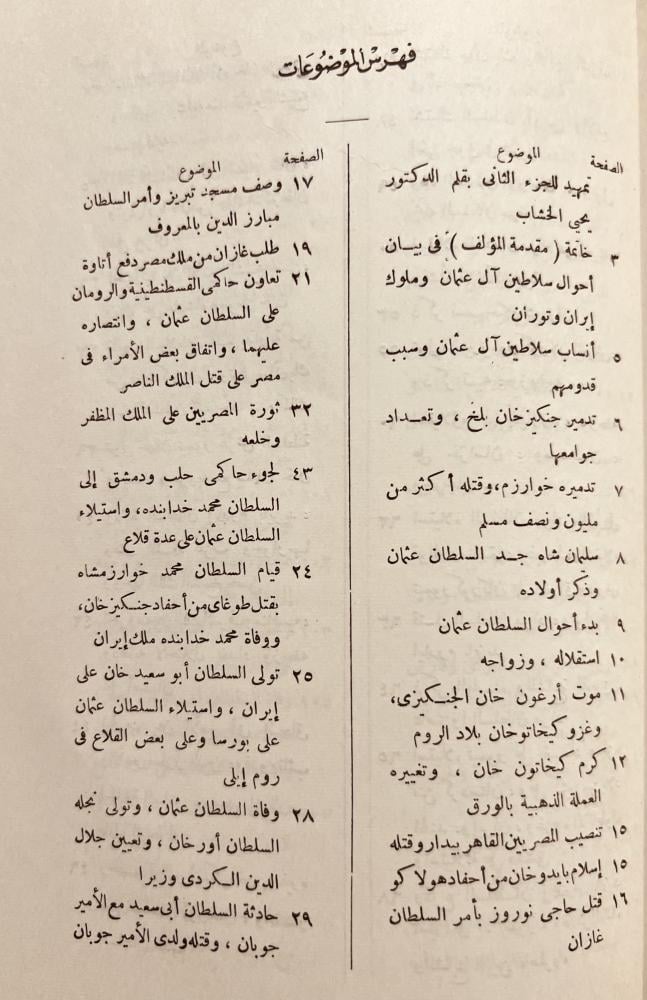 فهرس الموضوعات
الصفحة الموضوع
تمهيد للجزء الثانى بقلم الدكتور
يحيى الخشاب
٣ خاتمة ( مقدمة المؤلف ) فى بيــان
أحوال سلاطين آل عثمان وملوك
إيران وتوران
٥ أنساب سلاطين آل عثمان وسبب
قدومهم
٦ تدمير جنكيزخان بلخ ، وتعــداد
جوامعها
٧ تدميره خوارزم، وقتله أكثر من
مليون ونصف مسلم
٨ سليمان شاه جــد السلطان عثمان
وذكر أولاده
٩ بدء أحوال السلطان عثمان
١٠ استقلاله ، وزواجه
١١ موت أرغون خان الجنــكيزى،
وغزو كيخاتوخان بلاد الروم
١٢ كرم كيخاتون خان ، وتغييره
العملة الذهبية بالورق
١٥ تنصيب المصريين القاهر بيدار وقتله
١٥ إسلام بايدوخان من أحفاد هولاكو
١٦ قتل حاجى نوروز بأمر السلطان
غازان
الصفحة الموضوع
١٧ وصف مسجد تبريز وأمر السلطان
مبارز الدين بالمعروف
١٩ طلب غازان من ملك مصر دفع أتاوة
٢١ تعاون حاكمى القسطنطينية والرومان
على السلطان عثمان ، وانتصاره
عليهما ، واتفاق بعض الأمراء فى
مصر على قتل الملك الناصر
٣٢ ثورة المصريين على الملك المظفر
وخلعه
٤٣ لجوء حاكمى حلب ودمشق إلى
السلطان محمد خدابنده، واستيلاء
السلطان عثمان على عدة قلاع
٢٤ قيام السلطان محمد خوارزمشاه
بقتل طوغاى من أحفاد جنــكيزخان،
ووفاة محمد خدابنده ملك إيران
٢٥ تولى السلطان أبو سعيد خان على
إيران ، واستيلاء السلطان عثمان
على بورسا وعلى بعض القلاع فى
روم إيلى
٢٨ وفاة السلطان عثمان ، وتولى نجله
السلطان أورخان ، وتعيين جلال
الدين الــكردى وزيرا
٢٩ حادثة السلطان أبى سعيد مع الأمير
جوبان ، وقتله ولدى الأمير جوبان